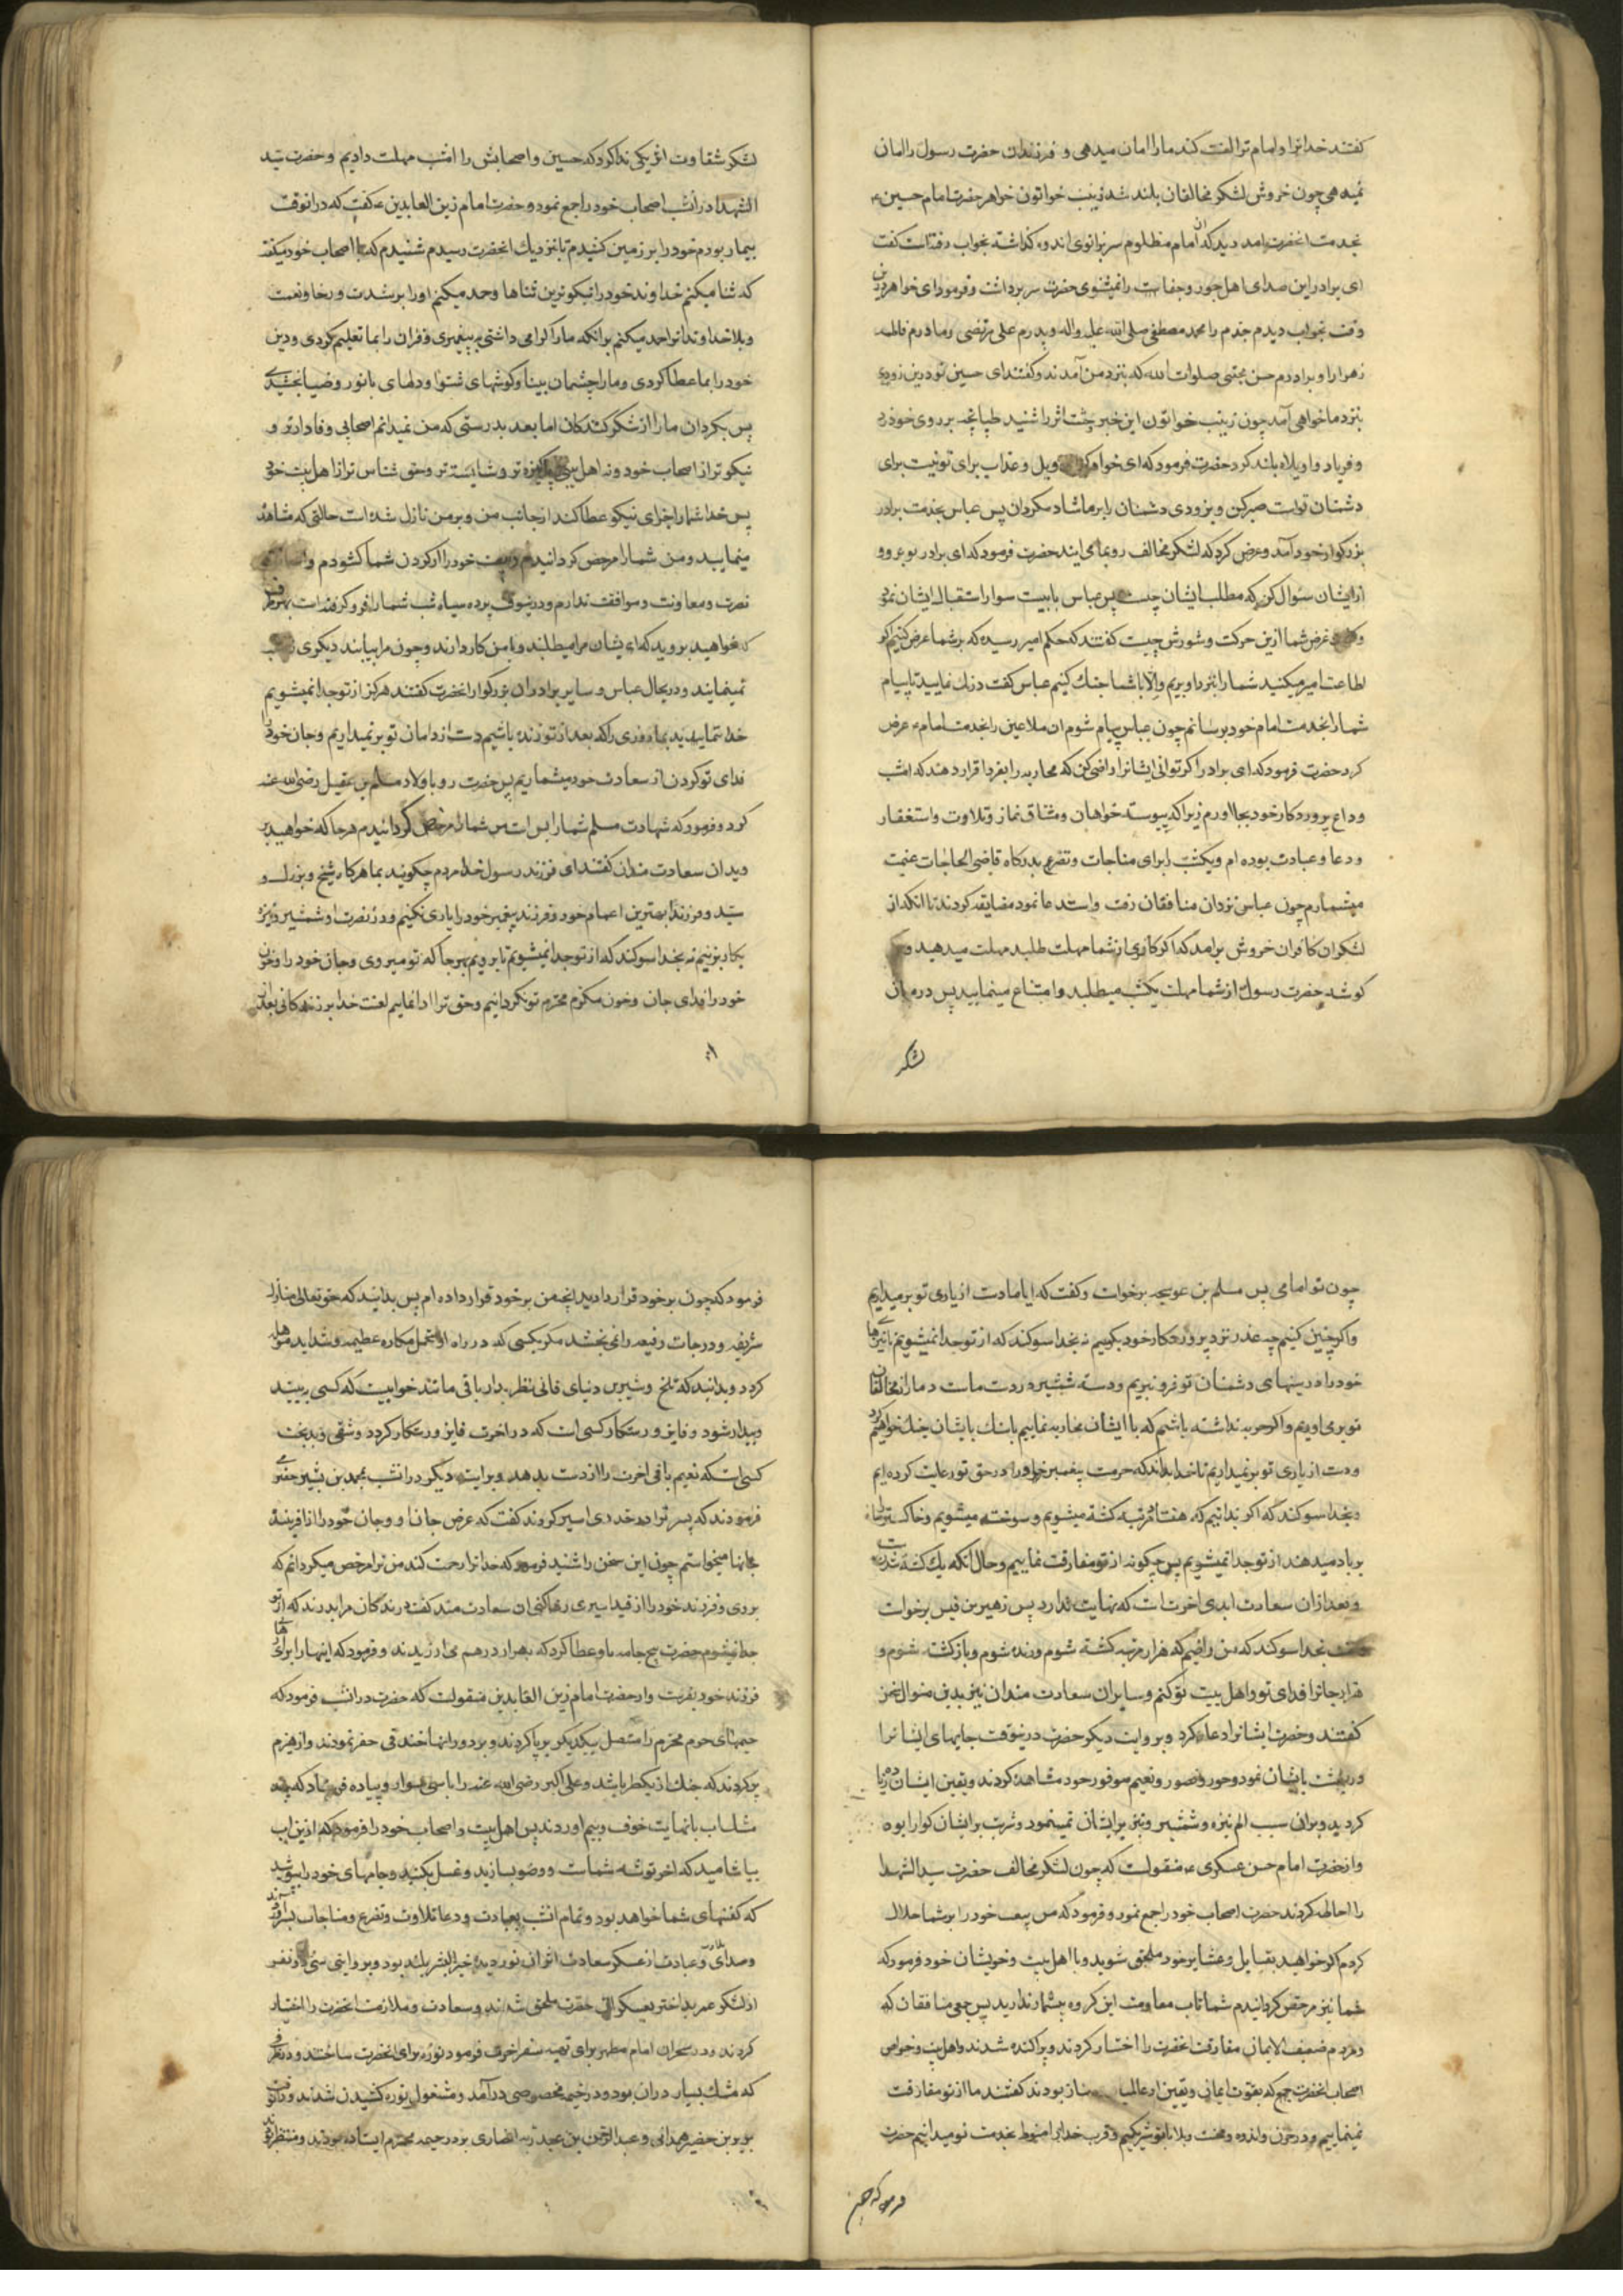 گفتند خدا ترا و امام ترا لعنت کند ما را امان میدهی و فرزندان حضرت رسول را امان
نمیدهی چون خروش لشکر مخالفان بلند شد زینب خواتون خواهر حضرت امام حسین ع
بخدمت انحضرت امد دید که ان امام مظلوم سر بزانوی اندوه گذاشته بخواب رفته است گفت
ای برادر این صداى اهل جور و جفا را نمیشنوی حضرت سر برداشت و فرمود ای خواهر درین
وقت بخواب دیدم جدم را محمد مصطفی صلی الله علیه واله و پدرم علی مرتضی و مادرم فاطمه
زهرا را و برادرم حسن مجتبی صلوات الله که بنزد من آمدند و گفتند ای حسین تو درین زودی
بنزد ما خواهی آمد چون زینب خواتون این خبر وحشت اثر را شنید طپانچه بر روی خود زد
و فریاد واویلاه بلند کرد حضرت فرمود که ای خواهر ویل و عذاب برای تو نیست برای
دشمنان تو است صبر کن و بزودی دشمنان را بر ما شاد مگردان پس عباس بخدمت برادر
بزرگوار خود آمد و عرض کرد که لشکر مخالف رو بما می ایند حضرت فرمود که ای برادر برو
از ایشان سئوال کن که مطلب ایشان چیست پس عباس با بیست سوار استقبال ایشان نمود
و گفت غرض شما ازین حرکت و شورش چیست گفتند که حکم امیر رسیده که بر شما عرض کنیم اگر
اطاعت امیر میکنید شما را بنزد او بریم والا با شما جنك کنیم عباس گفت درنك نمایید تا پیام
شما را بخدمت امام خود برسانم چون عباس پیام شوم ان ملاعین را بخدمت امام ع عرض
کرد حضرت فرمود که ای برادر اگر توانی ایشانرا راضی کن که محاربه را بفردا قرار دهند که امشب
وداع پروردگار خود بجا اورم زیرا که پیوسته خواهان و مشتاق نماز و تلاوت و استغفار
و دعا و عبادت بوده ام و یکشب را برای مناجات و تضرع بدرگاه قاضی الحاجات غنیمت
میشمارم چون عباس نزد ان منافقان رفت و استدعا نمود مضایقه کردند تا انکه از
لشکر ان کافران خروش برامد که اگر کافری از شما مهلت طلبد مهلت میدهید و
گوشه حضرت رسول از شما مهلت یکشب میطلبد و امتناع مینمایید پس در میان
لشکر
لشکر شقاوت اثر یکی ندا کرد که حسین و اصحابش را امشب مهلت دادیم و حضرت سید
الشهدا در انشب اصحاب خود را جمع نمود و حضرت امام زین العابدین ع گفت که در انوقت
بیمار بودم خود را بر زمین کشیدم تا بنزدیك انحضرت رسیدم شنیدم که با اصحاب خود میگفت
که ثنا میکنم خداوند خود را نیکوترین ثناها و حمد میکنم او را بر شدت و رخا و نعمت
و بلا خداوندا ترا حمد میکنم برانکه ما را گرامی داشتی به پیغمبری و قران را بما تعلیم کردی و دین
خود را بما عطا کردی و ما را چشمان بینا و گوشهای شنوا و دلهای با نور و ضیا بخشیدی
پس بگردان ما را از شکر کنندکان اما بعد بدرستی که من نمیدانم اصحابی وفادارتر و
نیکوتر از اصحاب خود و نه اهل بیتی پاکیزه تر و شایسته تر و حق شناس تر از اهل بیت خود
پس خدا شما را جزای نیکو عطا کند از جانب من و بر من نازل شده است حالتی که مشاهده
مینمایید و من شما را مرخص گردانیدم و بیعت خود را از گردن شما گشودم و
نصرت و معاونت و موافقت ندارم و درینوقت پرده سیاه شب شما را فرو گرفته است بهر طرف
که خواهید بروید که ایشان مرا میطلبند و با من کار دارند و چون مرا بیابند دیگری
نمینمایند و در انحال عباس و سایر برادران بزرگوار انحضرت گفتند هرگز از تو جدا نمیشویم
خدا ننماید بما روزی را که بعد از تو زنده باشیم دست از دامان تو بر نمیداریم و جان خود را
فدای تو کردن از سعادت خود میشماریم پس حضرت رو باولاد مسلم بن عقیل رضی الله عنه
کرد و فرمود که شهادت مسلم شما را بس است من شما را مرخص گردانیدم هرجا که خواهید بر
وید ان سعادت مندان گفتند ای فرزند رسول خدا مردم چگویند بما هرگاه شیخ و بزرگ و
سید و فرزند بهترین اعمام خود و فرزند پیغمبر خود را یاری نکنیم و در نصرت او شمشیر و نیزه
بکار نبریم نه بخدا سوگند که از تو جدا نمیشویم تا برویم بهر جا که تو میروی و جان خود را و خون
خود را فدای جان و خون مکرم محترم تو گردانیم و حق ترا ادا نماییم لعنت خدا بر زندکانی بعد از
چون تو امامی پس مسلم بن عوسجه برخواست و گفت که ایا ما دست از یاری تو بر میداریم
و اگر چنین کنیم چه عذر نزد پروردگار خود بگوییم نه بخدا سوگند که از تو جدا نمیشویم تا نیزهای
خود را در سینهای دشمنان تو فرو نبریم و دسته شمشیر در دست ماست دمار از مخالفان
تو بر می اوریم و اگر حربه نداشته باشیم که با ایشان محاربه نماییم با سنك با ایشان جنك خواهیم کرد
و دست از یاری تو بر نمیداریم تا خدا بداند که حرمت پیغمبر خدا را در حق تو رعایت کرده ایم
و بخدا سوگند که اگر بدانیم که هفتاد مرتبه کشته میشویم و سوخته میشویم و خاکستر ما را
بر باد میدهند از تو جدا نمیشویم پس چگونه از تو مفارقت نماییم و حال انکه یك کشته شدنست
و بعد از ان سعادت ابدی اخرت است که نهایت ندارد پس زهیر بن قیس برخواست
و گفت بخدا سوگند که من راضیم که هزار مرتبه کشته شوم و زنده شوم و باز کشته شوم و
هزار جانرا فدای تو و اهل بیت تو کنم و سایر ان سعادت مندان نیز بدین منوال سخن
گفتند و حضرت ایشانرا دعا کرد و بروایت دیگر حضرت درینوقت جایهای ایشانرا
در بهشت بایشان نمود و حور و قصور و نعیم موفور خود مشاهده کردند و یقین ایشان زیاده
گردید و بران سبب الم نیزه و شمشیر و تیر بر ایشان نمینمود و شربت بر ایشان گوارا بود
و از حضرت امام حسن عسکری ع منقولست که چون لشکر مخالف حضرت سید الشهدا
را احاطه کردند حضرت اصحاب خود را جمع نمود و فرمود که من بیعت خود را بر شما حلال
کردم اگر خواهید بقبایل و عشایر خود ملحق شوید و با اهل بیت و خویشان خود فرمود که
شما نیز مرخص گردانیدم شما تاب مقاومت این گروه بیشمار ندارید پس جمعی منافقان که
و مردم ضعیف الایمان مفارقت انحضرت را اختیار کردند و پراکنده شدند و اهل بیت و خواص
اصحاب انحضرت جمع که بقوت ایمانی و یقین از عالمیان ممتاز بودند گفتند ما از تو مفارقت
نمینماییم و در حزن و اندوه و محنت و بلا با تو شریکیم و قرب خدا را منوط بخدمت تو میدانیم حضرت
فرمود که چون
فرمود که چون بر خود قرار دادید انچه من بر خود قرار داده ام پس بدانید که حق تعالی منازل
شریفه و درجات رفیعه را نمی بخشد مگر بکسی که در راه او متحمل مکاره عظیمه و شداید هایله
گردد و بدانید که تلخ و شیرین دنیای فانی نظر بدار باقی مانند خوابیست که کسی بیند
و بیدار شود و فایز و رستگار کسی است که در اخرت فایز و رستگار گردد و شقی و بدبخت
کسی استکه نعیم باقی اخرت را از دست بدهد و بروایت دیگر در انشب بمحمد بن بشیر حضرمی
فرمودند که پسر ترا در حد ری اسیر کردند گفت که عوض جان او و جان خود را از افریننده
جانها میخواستم چون این سخن را شنید فرمود که خدا ترا رحمت کند من ترا مرخص میگردانم که
بروی و فرزند خود را از قید اسیری رها کنی ان سعادت مند گفت درندگان مرا بدرند که از تو
جدا نمیشوم حضرت پنج جامه باو عطا کرد که بهزار درهم می ارزیدند و فرمود که اینها را برای رهایی
فرزند خود بفرست و از حضرت امام زین العابدین منقولست که حضرت در انشب فرمود که
خیمهای حرم محترم را متصل بیکدیگر بر پا کردند و بر دور انها خندقی حفر نمودند و از هیزم
پر کردند که جنك از یکطرف باشد و علی اکبر رضی الله عنه را با سی سوار و پیاده فرستاد که چند
مشك اب با نهایت خوف و بیم اوردند پس اهل بیت و اصحاب خود را فرمود که ازین اب
بیاشامید که اخر توشه شماست و وضو بسازید و غسل بکنید و جامهای خود را بشویید
که کفنهای شما خواهد بود و تمام انشب بعبادت و دعا و تلاوت و تضرع و مناجات بسر آوردند
و صدای تلاوت و عبادت از عسکر سعادت اثر ان نور دیده خیر البشر بلند بود و بروایتی سی و دو نفر
از لشکر عمر بد اختر بعسکر ان حضرت ملحق شدند و سعادت و ملازمت انحضرت را اختیار
کردند و در سحر ان امام مطهر برای تهیه سفر اخرت فرمود نوره برای انحضرت ساختند در ظرفی
که مشك بسیار دران بود و در خیمه مخصوصی درآمد و مشغول نوره کشیدن شدند و در انوقت
بریر بن خضیر همدانی و عبدالرحمن بن عبد ربه انصاری بر در خیمه محترم ایستاده بودند و منتظر بودند